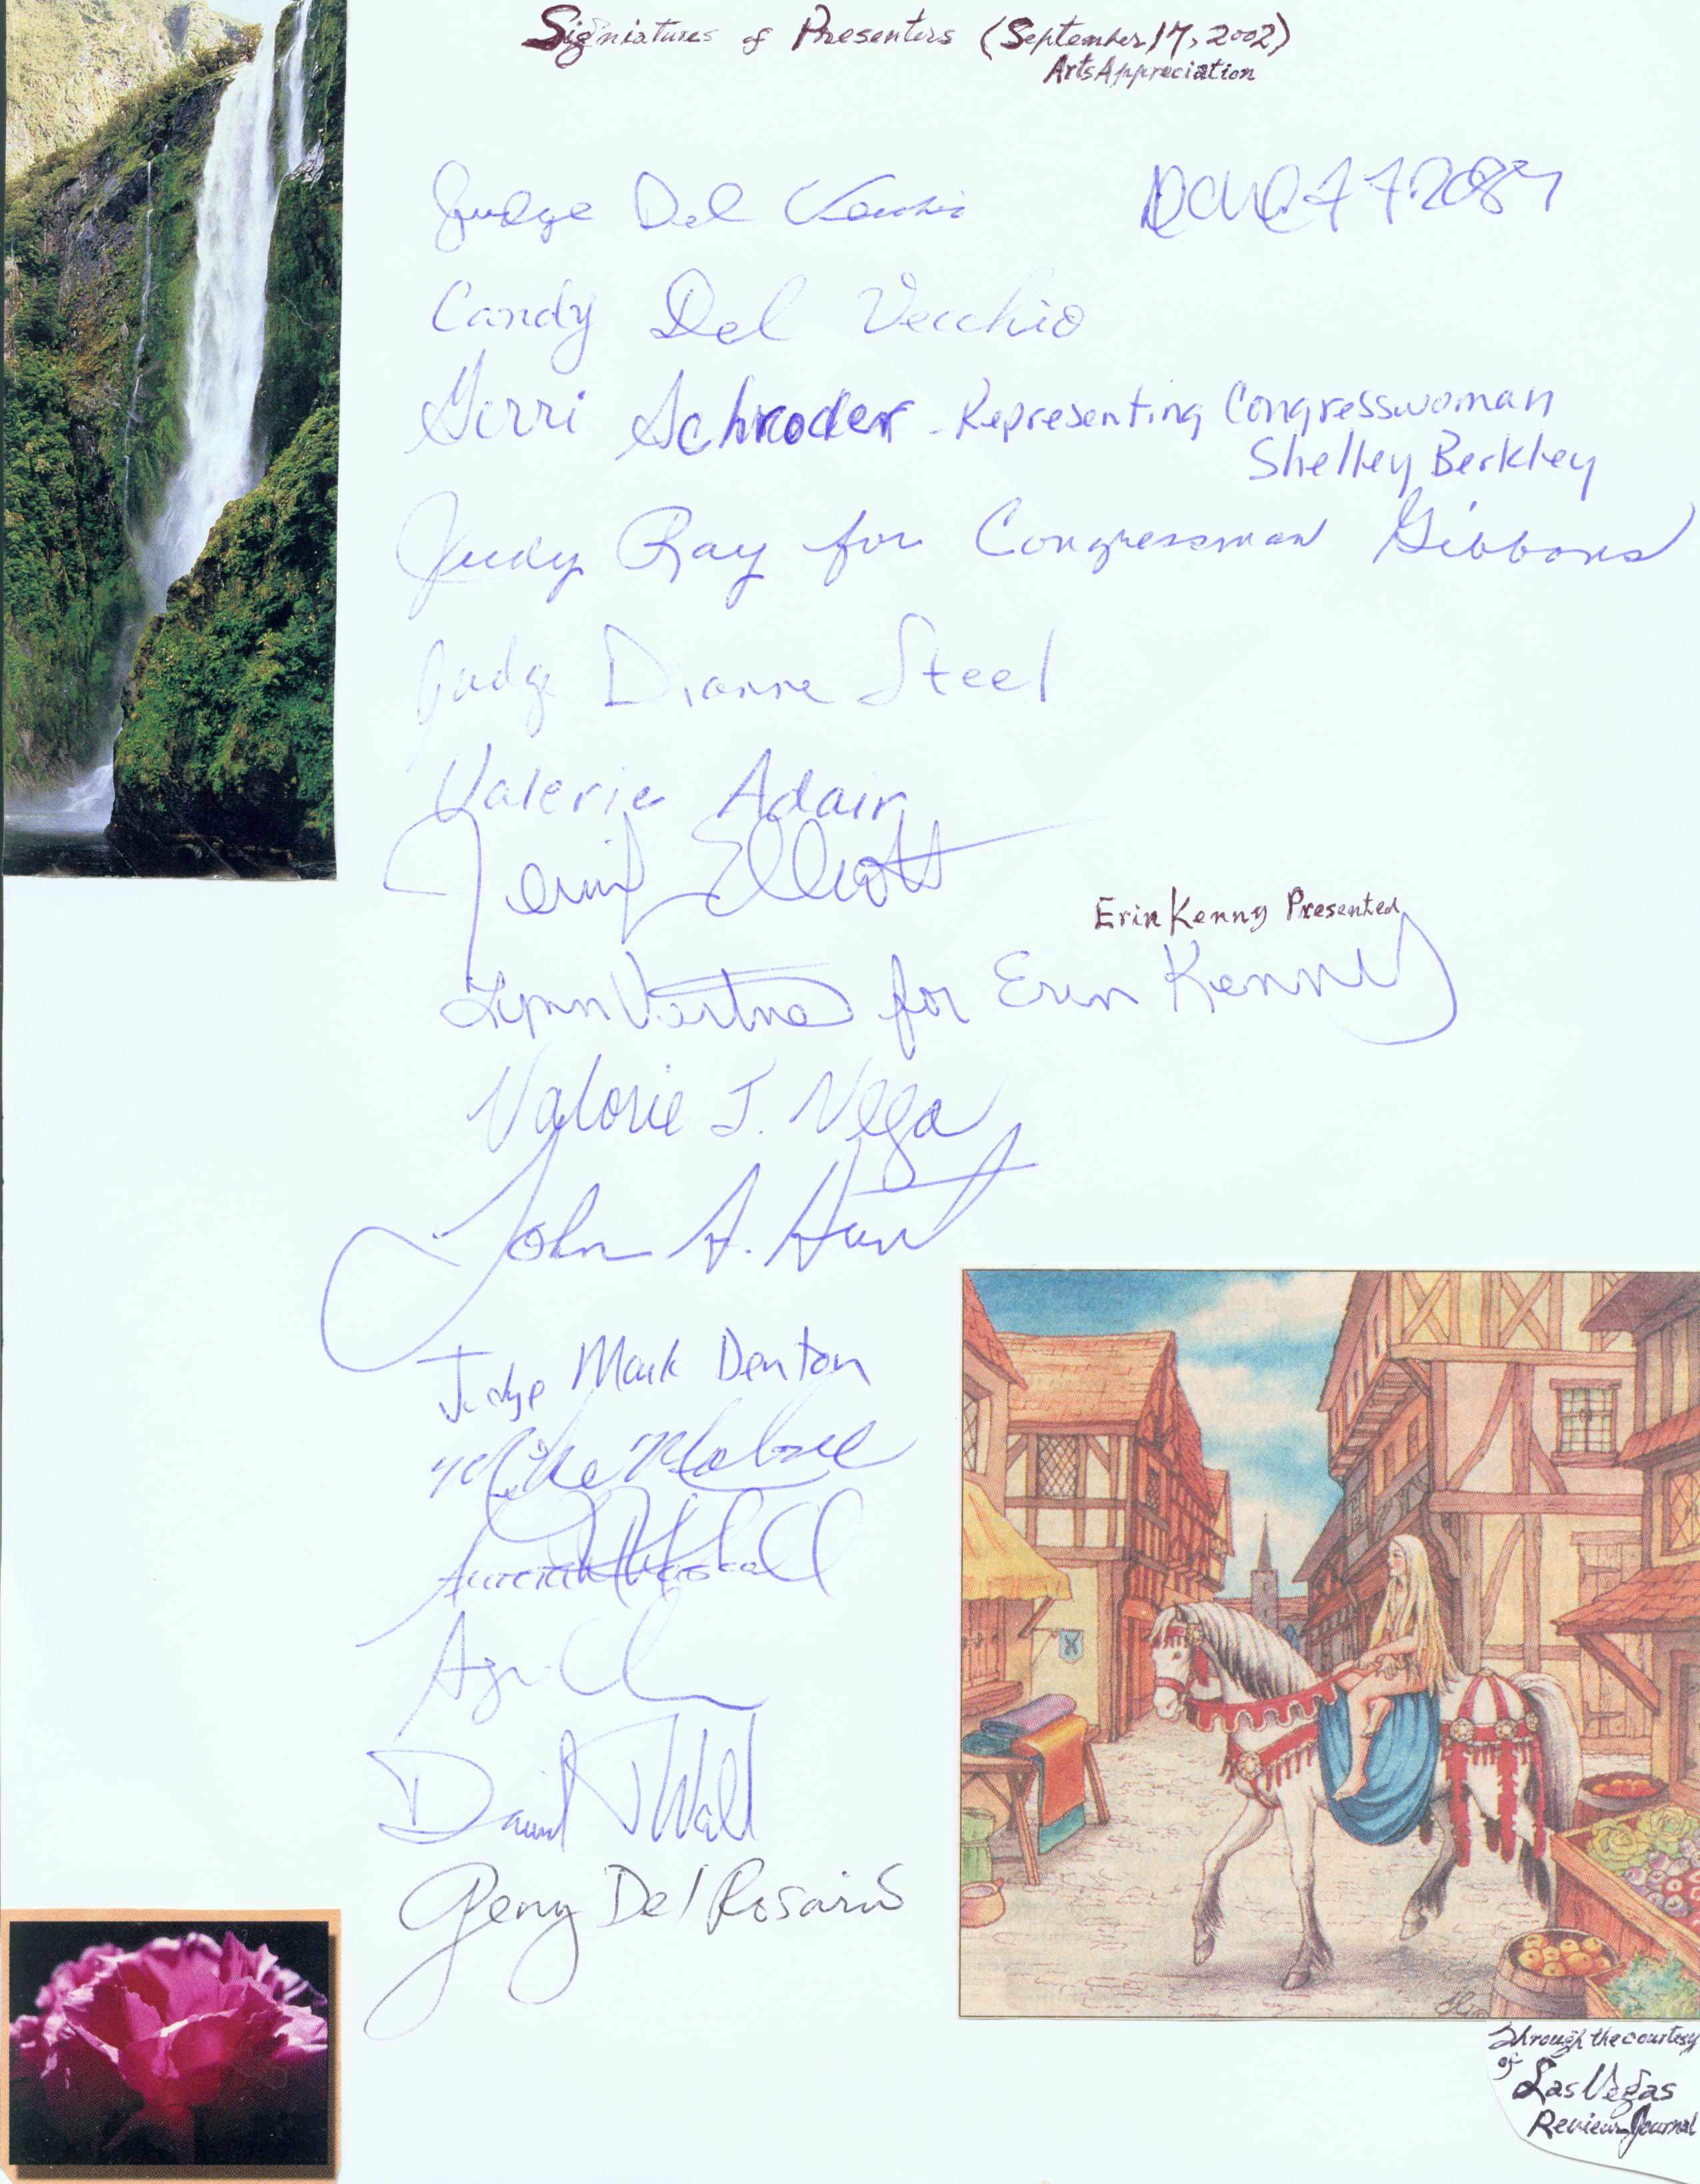 Signiatures of Presenters (September 17, 2002)
Arts Appreciation
Judge Del Vecchio
Candy Del Vecchio
Gerri Schroder - Representing Congresswoman
Shelley Berkley
Judy Ray for Congressman Gibbons
Judge Dianne Steel
Valerie Adair
Elliott
Erin Kenny Presented
Lynn for Erin Kenny
Valorie J. Vega
John A. Hunt
Judge Mark Denton
Mike Malone
David Wall
Geny Del Rosario
Through the courtesy
of
Las Vegas
Review Journal